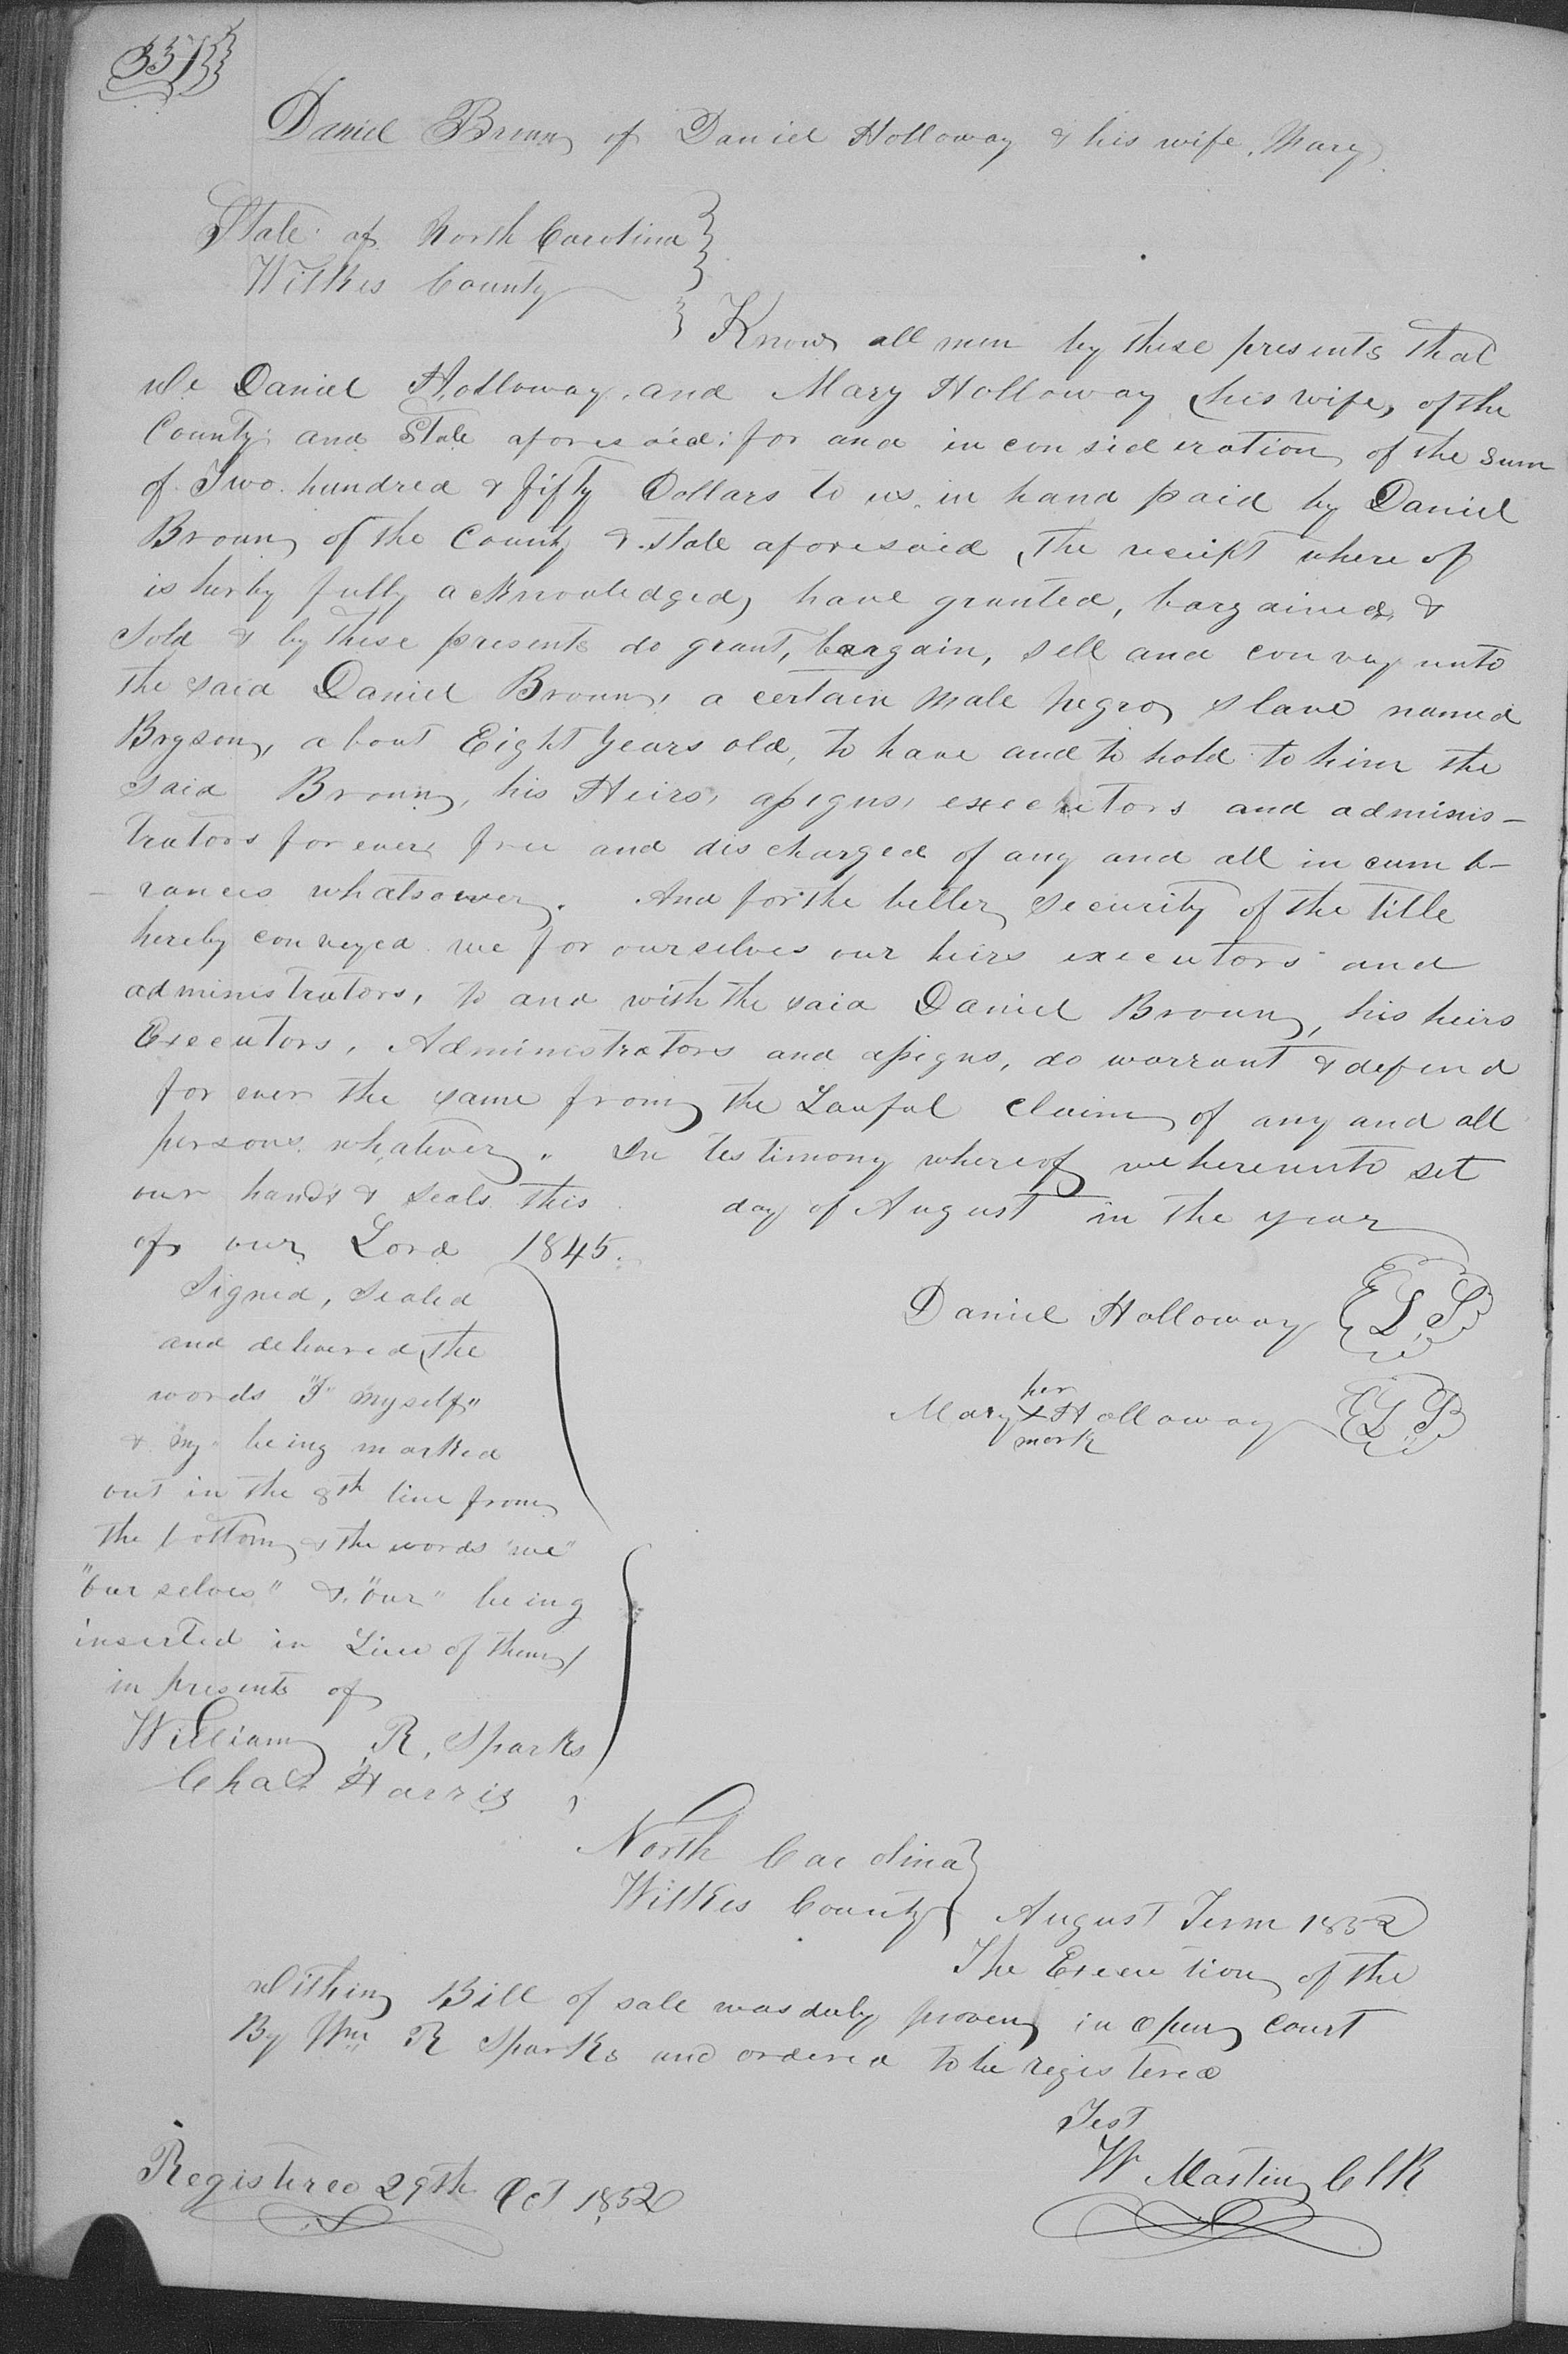 351
Daniel Brown of Daniel Holloway & his wife Mary
State of North Carolina
Wilkes County
Know all men by these presents that
We Daniel Holloway and Mary Holloway his wife, of the
County and State aforesaid: for and in consideration of the sum
of Two hundred & fifty Dollars to us in hand paid by Daniel
Brown of the County & state aforesaid, the receipt where of
is herby fully acknowledged, have granted, bargained &
Sold & by these presents do grant, bargain, sell and convey unto
the said Daniel Brown, a certain Male Negro slave named
Bryson, about Eight Years old, to have and to hold to him the
said Brown, his Heirs, assigns, executors and adminis-
trators forever free and discharged of any and all incumb-
-rances whatsoever. And for the better security of the title
hereby conveyed we for ourselves our heirs executors and
administrators, to and with the said Daniel Brown, his heirs
Executors, Administrators and assigns, do warrant & defend
for ever the same from the Lawful claim of any and all
persons whatever. In testimony whereof we hereunto set
our hands & seals this day of August in the year
of our Lord 1845.
Signed, Sealed
and delivered, the
words "I" "myself"
& "my" being marked
out in the 8th line from
the bottom & the words "we"
"ourselves" & "our" being
inserted in Lieu of them
in presents of
William R. Sparks
Chas Harris
Daniel Holloway L.S.
her
Mary X Holloway L.S.
mark
North Carolina
Wilkes County August Term 1852
The Execution of the
Within Bill of sale was duly proven in open court
By Wm R Sparks and ordered to be registered
Test
W Mastin Clk
Registered 29th Oct 1852